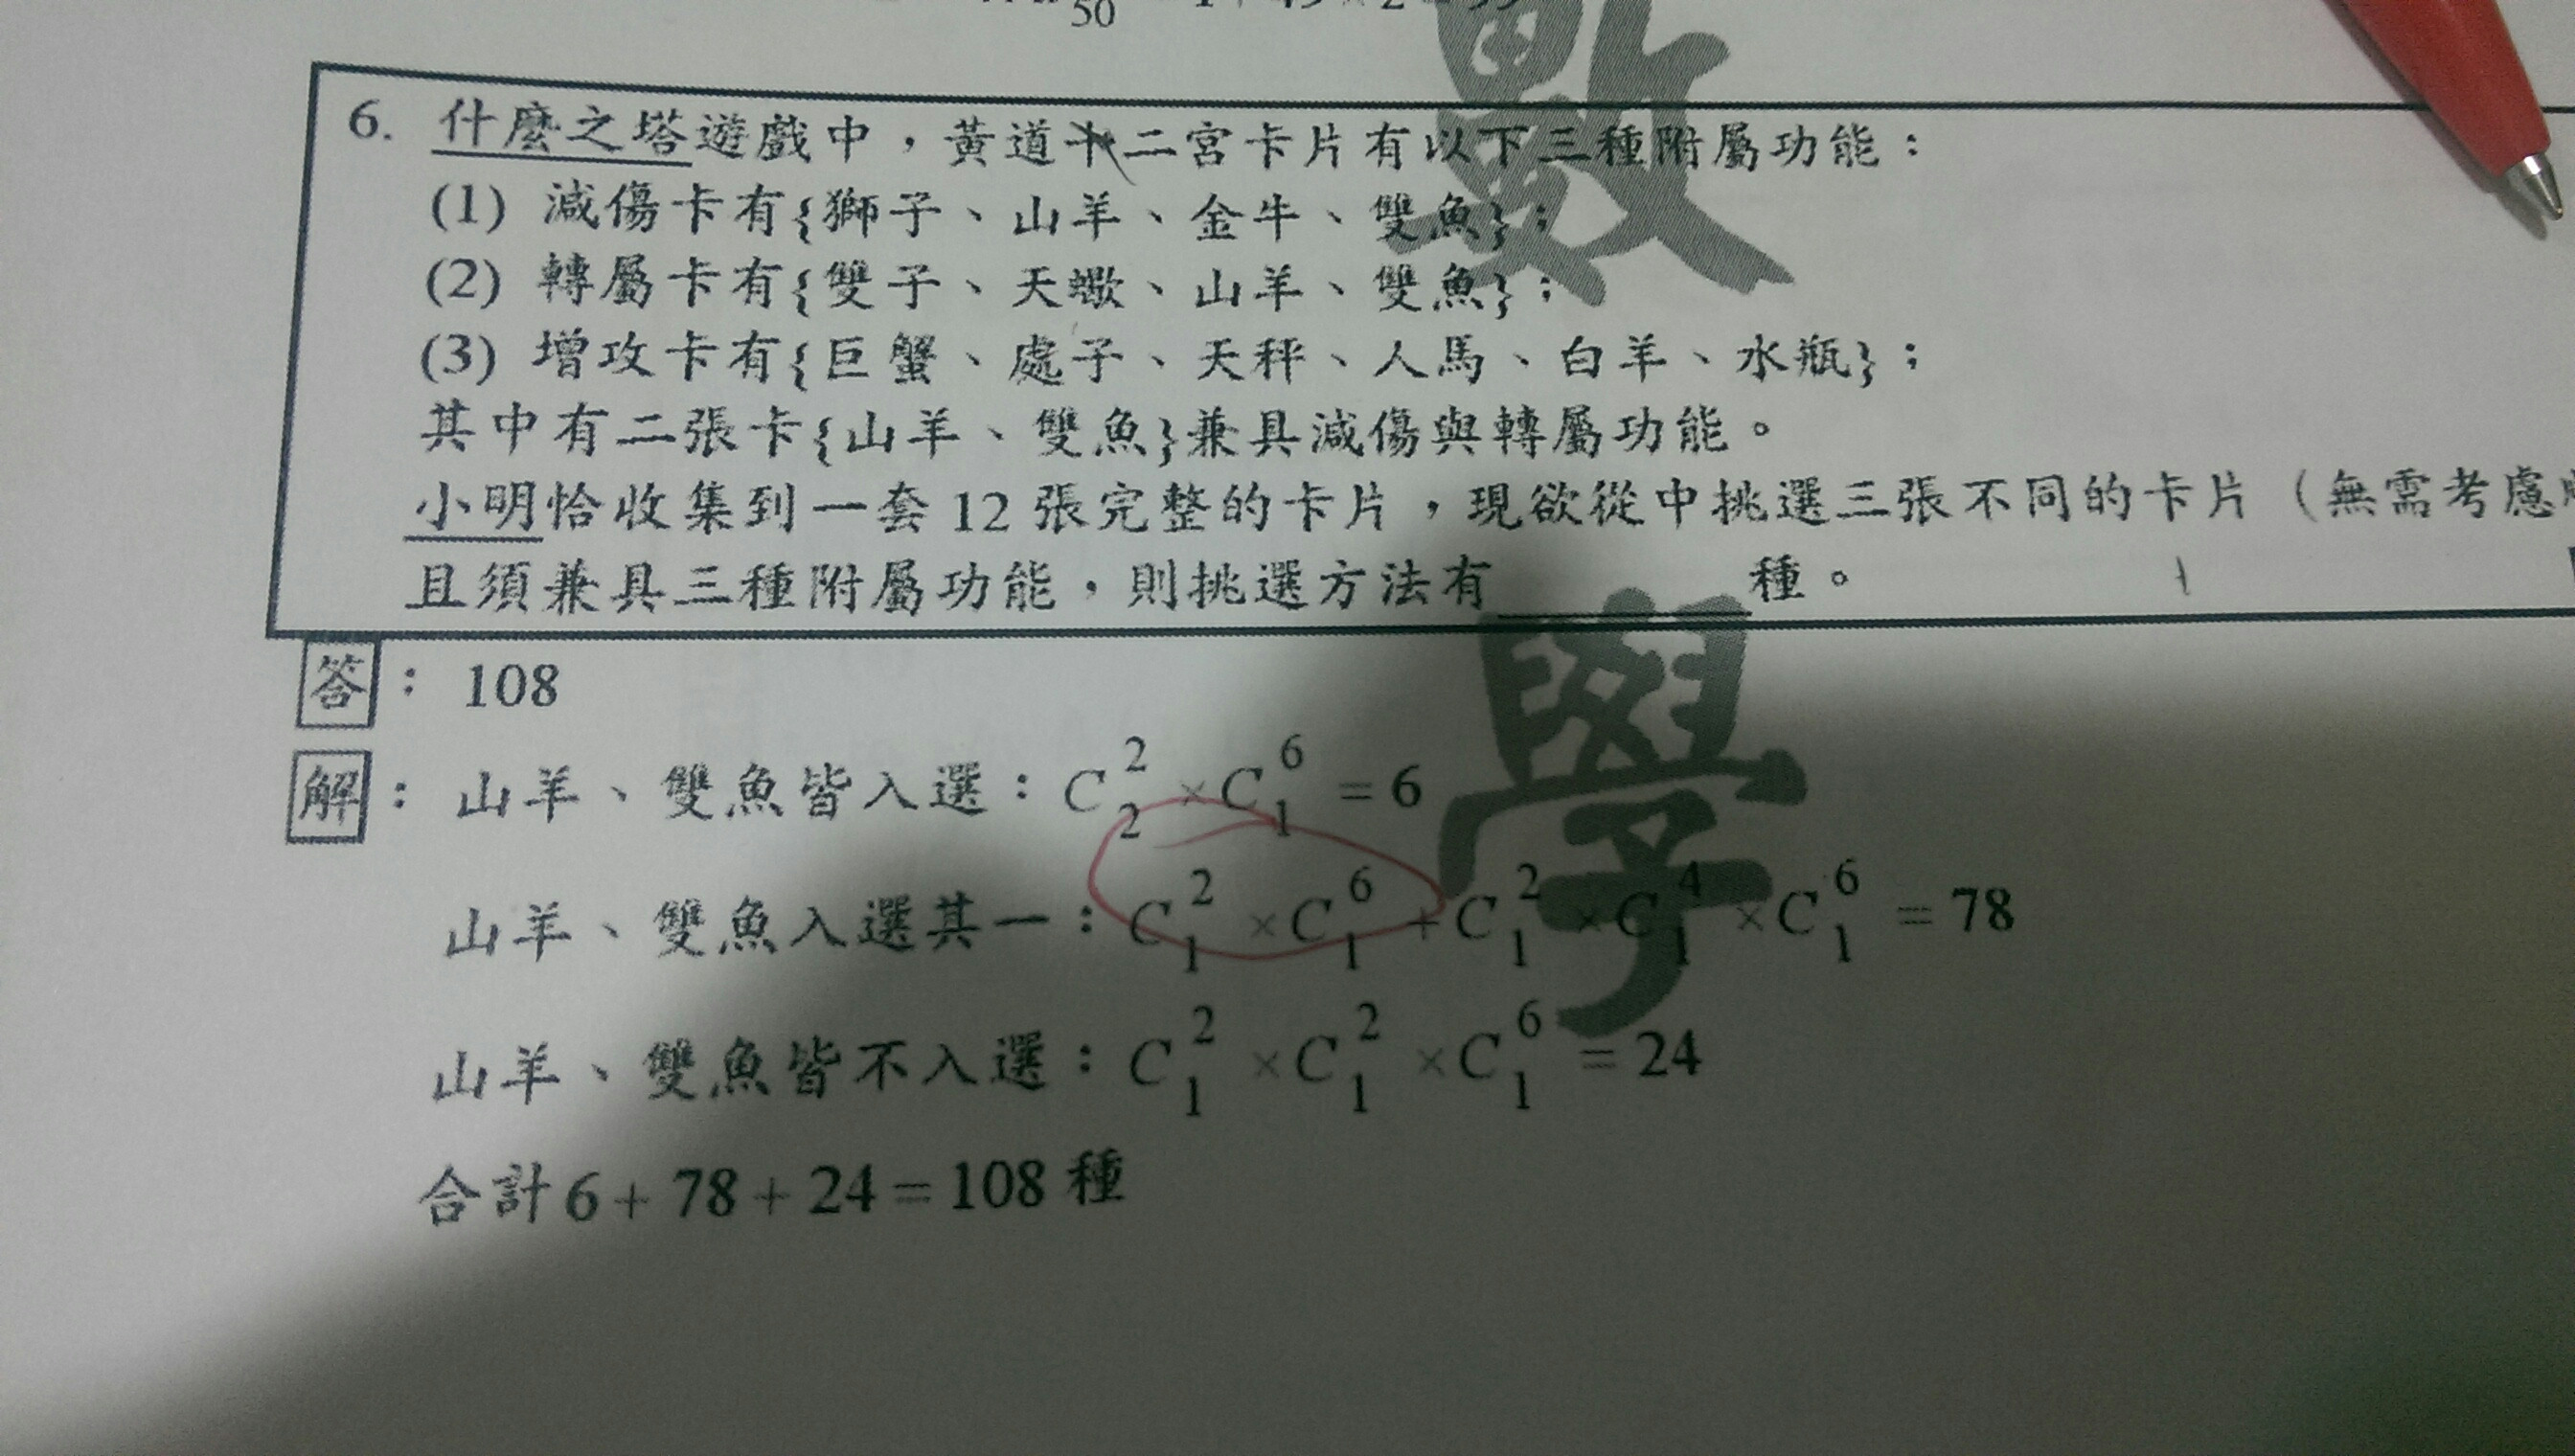 50
6. 什麼之塔遊戲中，黃道十二宮卡片有以下三種附屬功能：
(1) 減傷卡有{獅子、山羊、金牛、雙魚}；
(2) 轉屬卡有{雙子、天蠍、山羊、雙魚}；
(3) 增攻卡有{巨蟹、處子、天秤、人馬、白羊、水瓶}；
其中有二張卡{山羊、雙魚}兼具減傷與轉屬功能。
小明恰收集到一套 12 張完整的卡片，現欲從中挑選三張不同的卡片（無需考慮
且須兼具三種附屬功能，則挑選方法有______種。
答：108
解：山羊、雙魚皆入選：C^2_2 × C^6_1 = 6
山羊、雙魚入選其一：C^2_1 × C^6_1 + C^2_1 × C^4_1 × C^6_1 = 78
山羊、雙魚皆不入選：C^2_1 × C^2_1 × C^6_1 = 24
合計 6 + 78 + 24 = 108 種
數
學